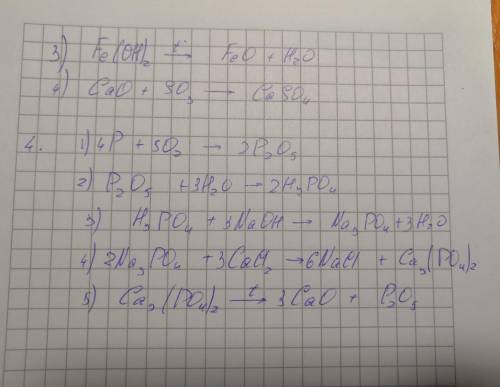 3) Fe(OH)₂ —t→ FeO + H₂O
4) CaO + SO₃ → CaSO₄
4. 1) 4P + 5O₂ → 2P₂O₅
2) P₂O₅ + 3H₂O → 2H₃PO₄
3) H₃PO₄ + 3NaOH → Na₃PO₄ + 3H₂O
4) 2Na₃PO₄ + 3CaCl₂ → 6NaCl + Ca₃(PO₄)₂
5) Ca₃(PO₄)₂ —t→ 3CaO + P₂O₅